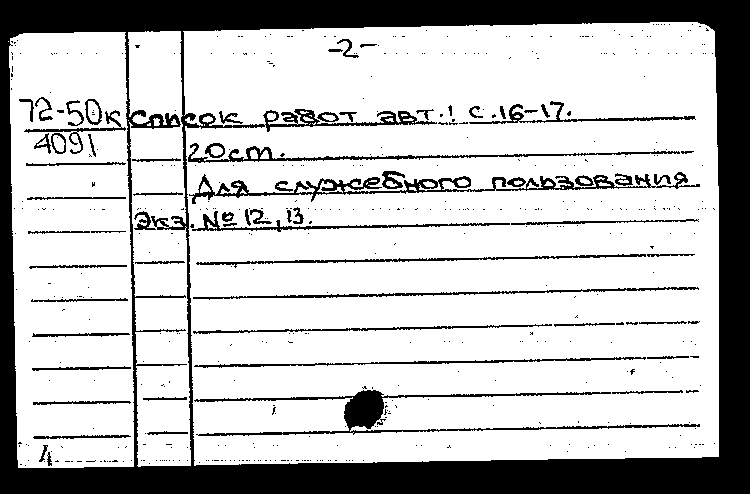 -2-
72-50к Список работ авт.: с.16-17.
4091
20ст.
Для служебного пользования
Экз. №12,13.
4